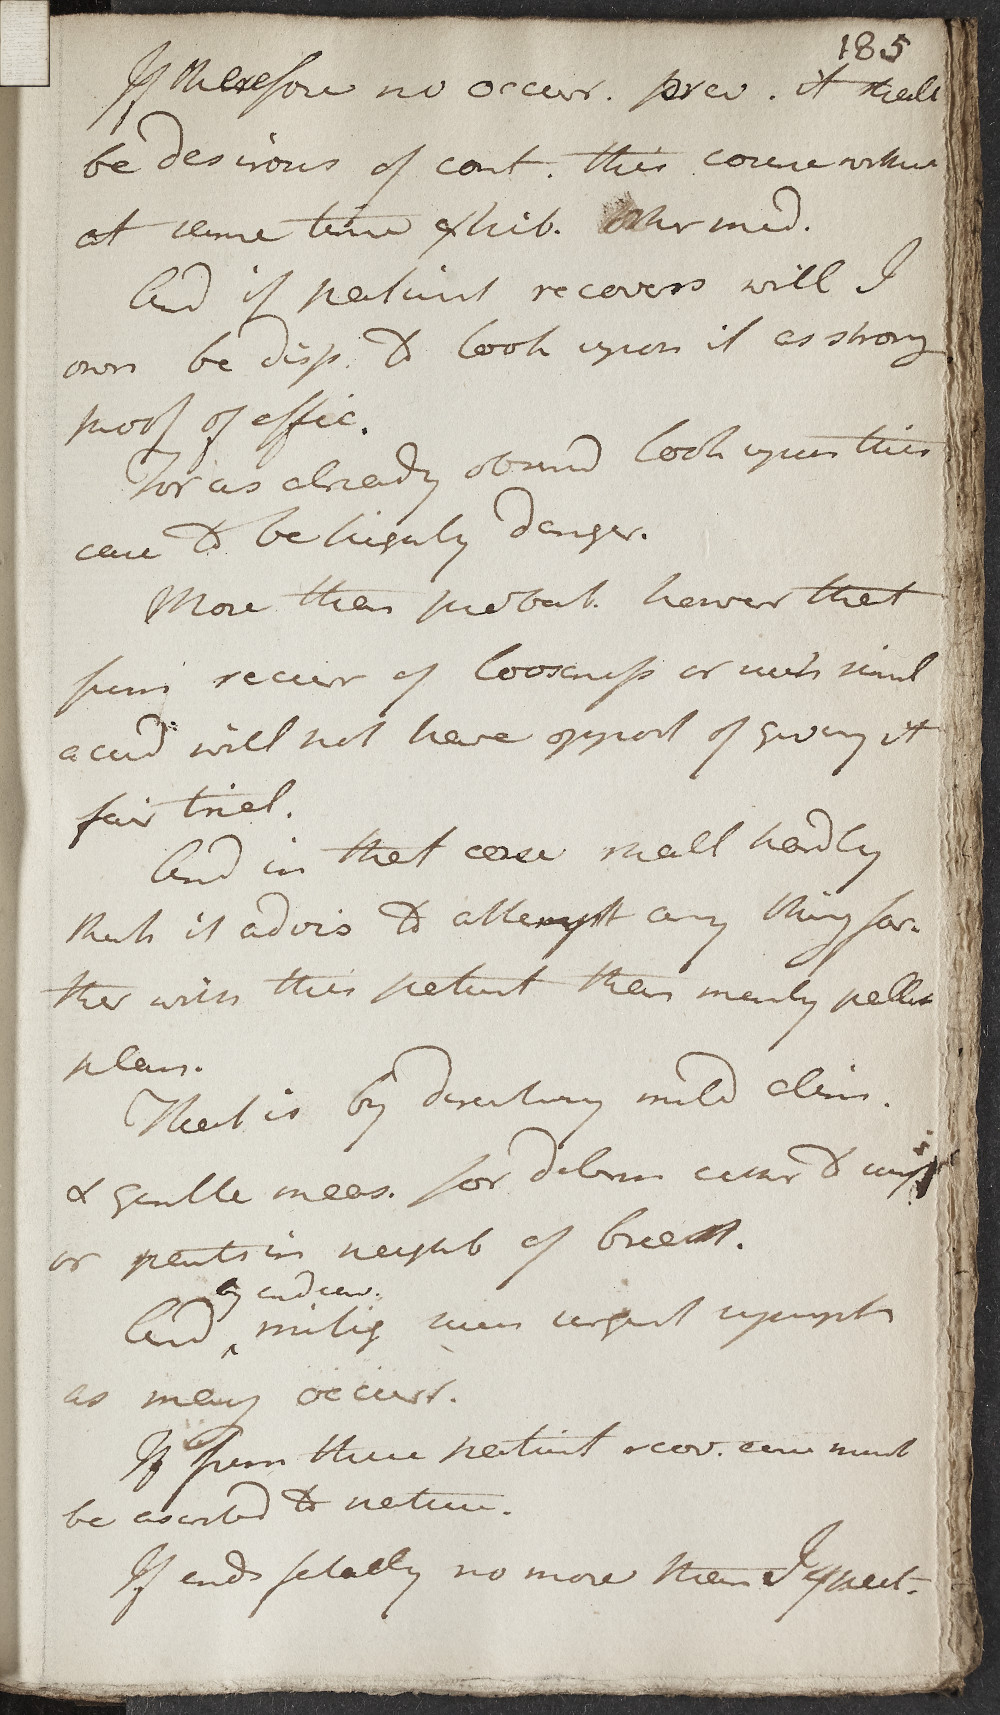 185
If therefore no occurr. prev. it shall
be desirous of cont. this course without
at same time exhib. other med.
And if patient recovers will I
own be disp. to look upon it as strong
proof of effic.
For as already observd look upon this
case to be highly danger.
More than probab. however that
from recurr of looseness or such
acid will not have opport of giving it
fair trial.
And in that case shall hardly
think it advis to attempt any thing far-
ther with this patient than merely palliat
plan.
That is by directing mild alim.
& gentle meas. for determ either to
or parts in neighb of breast.
by endeav.
And mitig such urgent sympt
as may occurr.
If from these patient recov. cure must
be ascribd to nature.
If ends fatally no more than I expect.